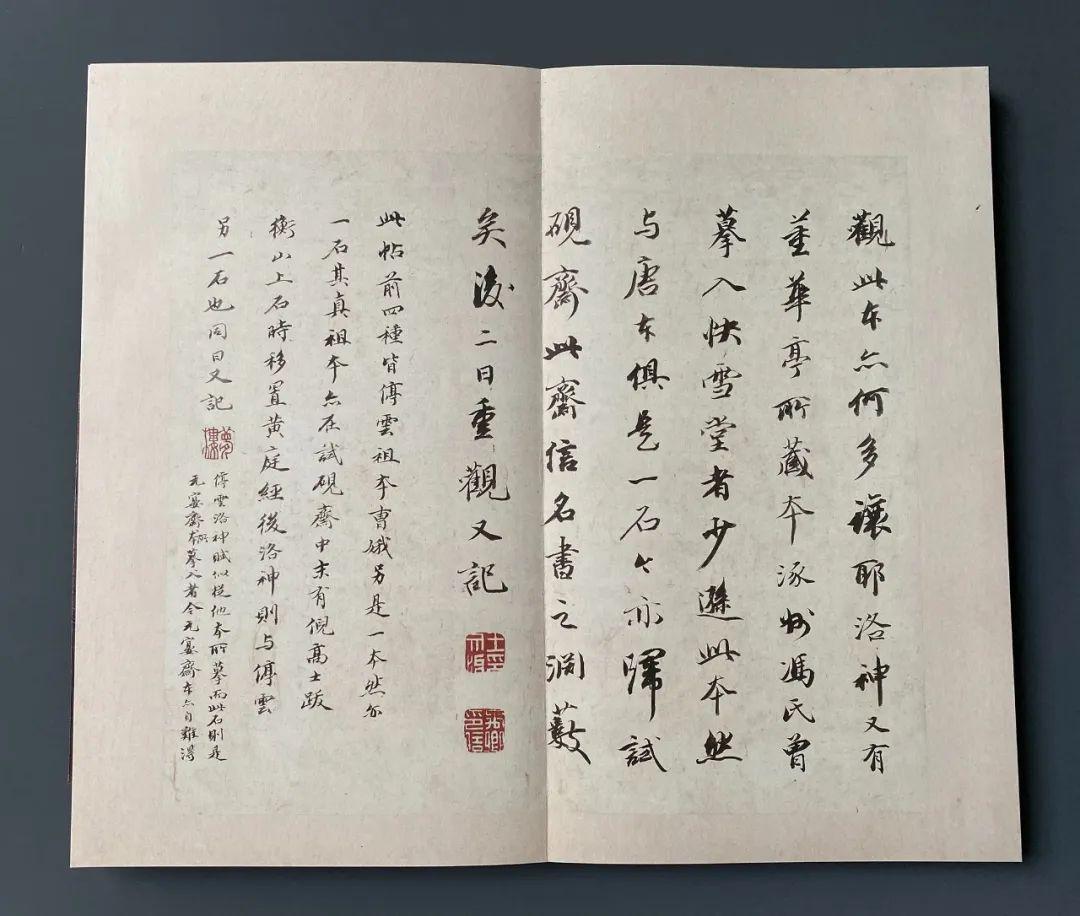 觀此本亦何多讓耶洛神又有
董華亭所藏本涿州馮氏曾
摹入快雪堂者少遜此本然
与唐本俱是一石今亦歸試
硯齋此齋信名書之淵藪
矣後二日重觀又記
此帖前四種皆停雲祖本曹娥另是一本然亦
一石其真祖本亦在試硯齋中末有倪高士跋
衡山上石時移置黃庭經後洛神則与停雲
另一石也同日又記
停雲洛神賦似從他本所摹而此石則是
元宴齋本摹入者今元宴齋本亦自難得